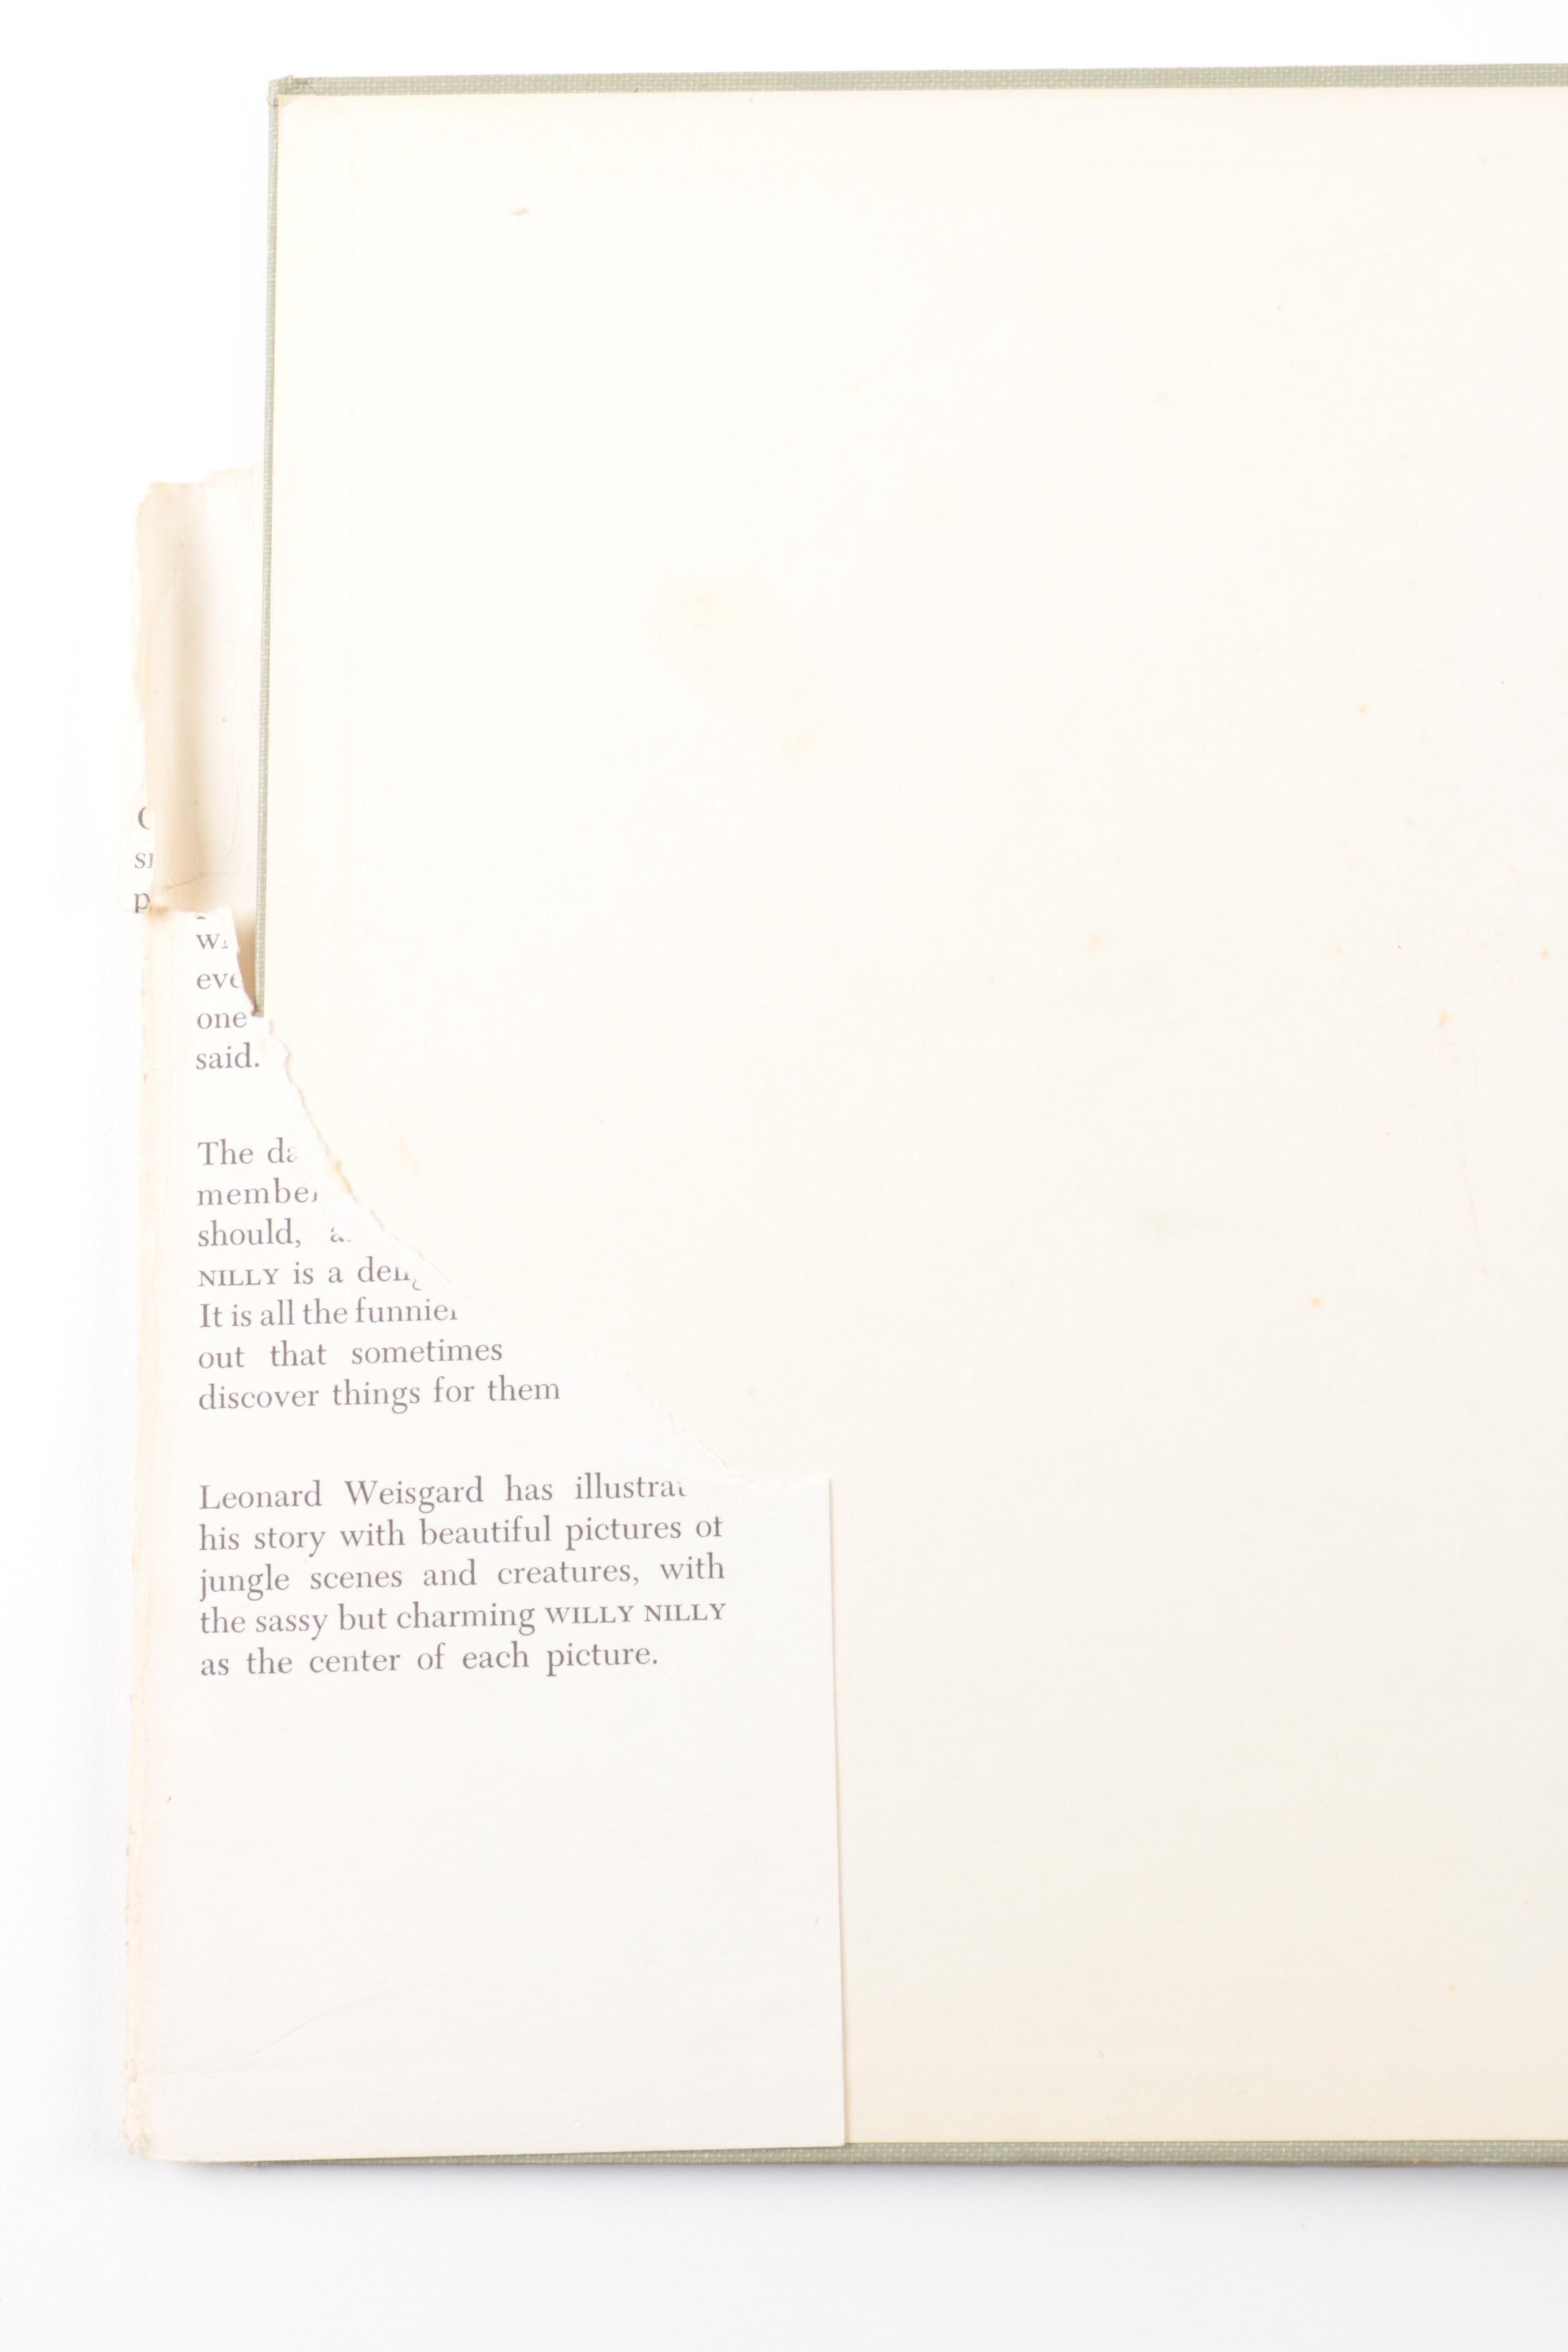 one
said.
The
should,
NILLY is a
It is all the
out that sometimes
discover things for them
Leonard Weisgard has
his story with beautiful pictures of
jungle scenes and creatures, with
the sassy but charming WILLY NILLY
as the center of each picture.